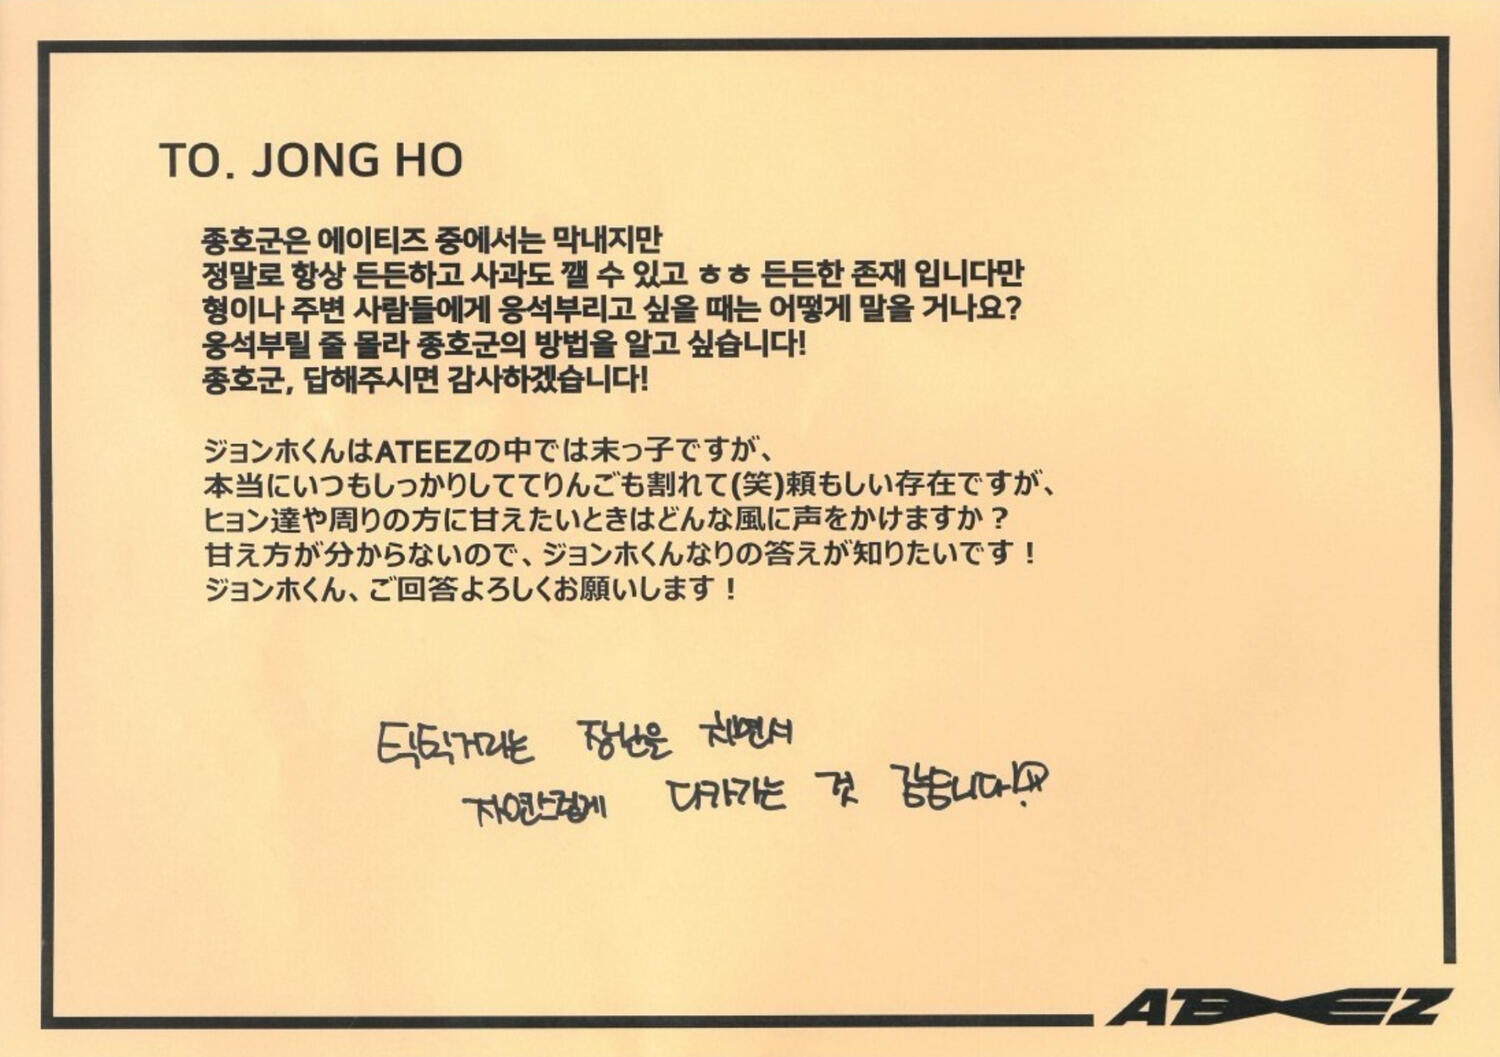 TO. JONG HO
종호군은 에이티즈 중에서는 막내지만
정말로 항상 든든하고 사과도 깰 수 있고 ㅎㅎ 든든한 존재 입니다만
형이나 주변 사람들에게 응석부리고 싶을 때는 어떻게 말을 거나요?
응석부릴 줄 몰라 종호군의 방법을 알고 싶습니다!
종호군, 답해주시면 감사하겠습니다!
ジョンホくんはATEEZの中では末っ子ですが、
本当にいつもしっかりしててりんごも割れて(笑)頼もしい存在ですが、
ヒョン達や周りの方に甘えたいときはどんな風に声をかけますか？
甘え方が分からないので、ジョンホくんなりの答えが知りたいです！
ジョンホくん、ご回答よろしくお願いします！
틱틱거리는 장난을 치면서
자연스럽게 다가가는 것 같습니다!
ATEEZ